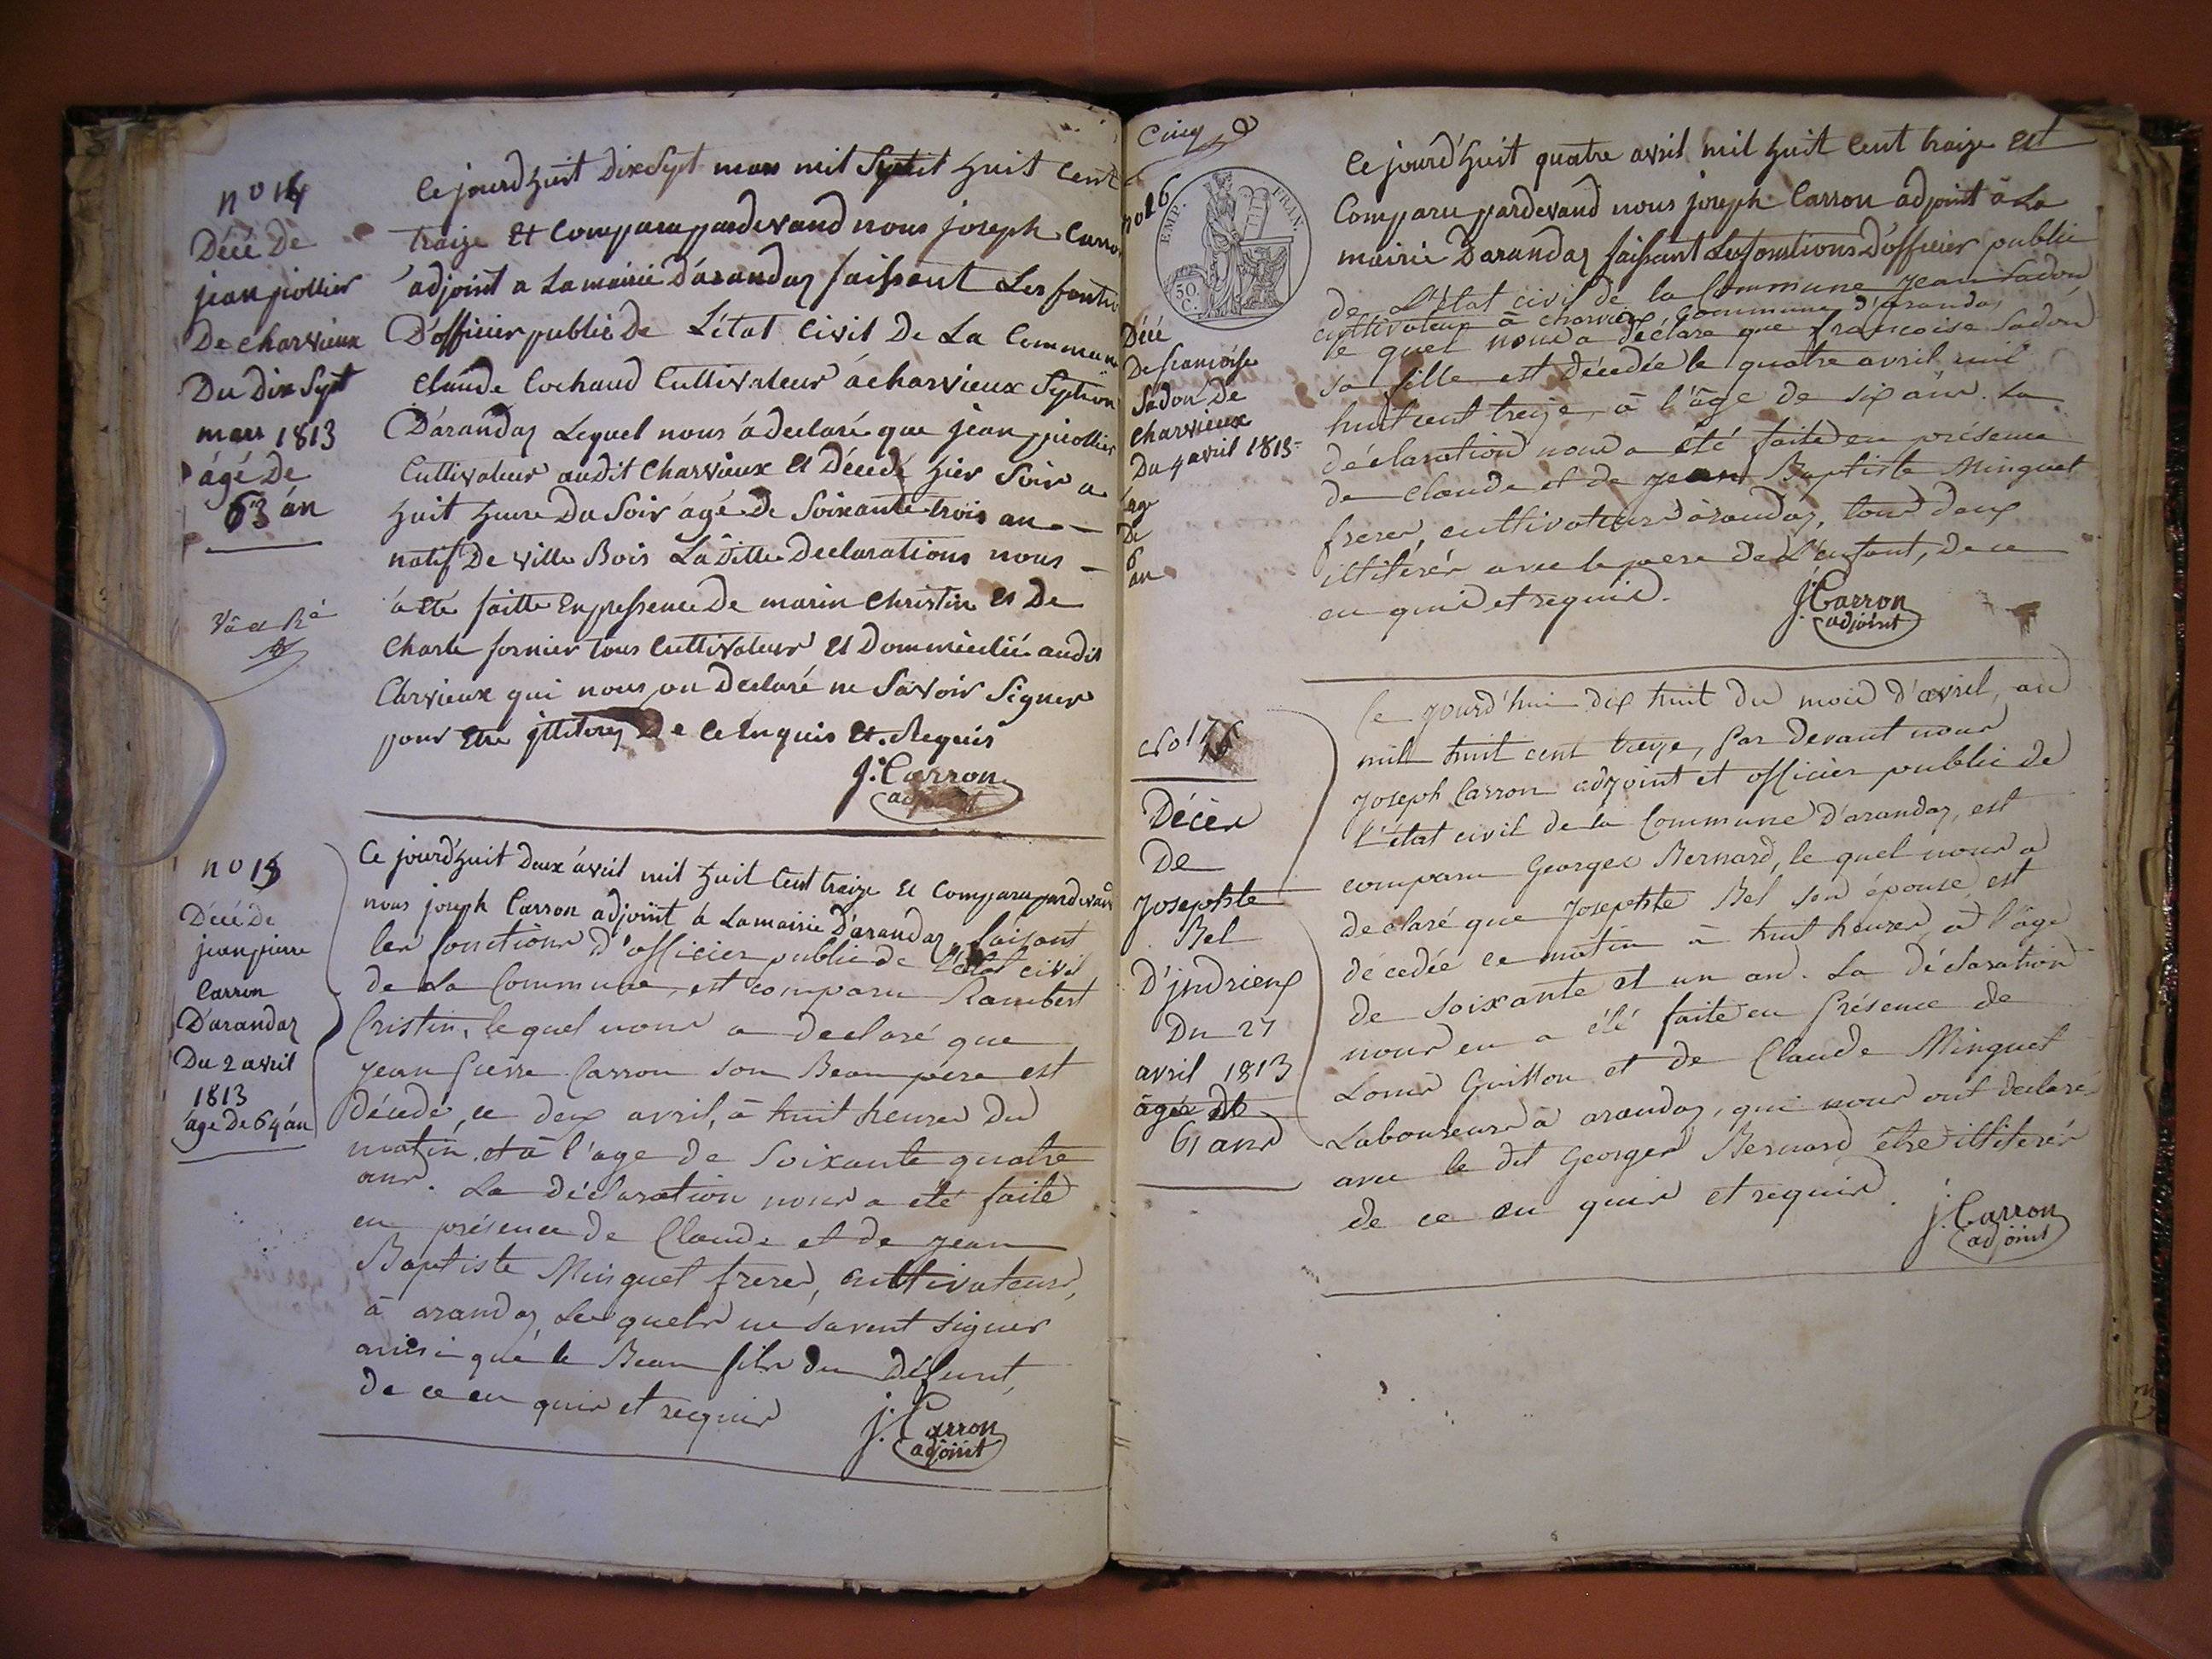 no 14
Décé De
jean piollier
De charvieux
Du dix Sept
mars 1813
âgé De
63 án
Ce jourd'huit Dix Sept mars mil huit Cent
traize Et Compara pardevand nous joseph Carron
adjoint a La mairie D'arandaz faissent Les
D'officier public De L'état Civil De La Commune
Claude Cochaud Cultivateur à charvieux Section
D'arandaz Lequel nous á declaré que jean piollier
Cultivateur audit Charvieux Et Décedé hier Soir a
huit heure Du Soir ágé De Soixante trois an
natif De ville Bois La Ditte Declarations nous
á été faitte En pressence De marin Christin Et De
Charle fornier tous Cultivateur Et Dommicilié audit
Charvieux qui nous on Declaré ne Savoir Signer
pour Etre jlliterez De Ce Enquis Et Requis
J. Carron
adjoint
no 15
Décé De
jean pierre
Carron
D'arandaz
Du 2 avril
1813
âge De 64 án
Ce jourd'huit Deux ávril mil huit Cent traize Et Comparu pardevand
nous joseph Carron adjoint à La mairie D'arandaz, faisant
les fonctions d'officier public de L'état civil
de La Commune, est comparu Rambert
Cristin, le quel nous a declaré que
jean Pierre Carron son Beau pere est
décédé, ce deux avril, à huit heures du
matin, et à l'age de Soixante quatre
ans. La déclaration nous a été faite
en présence de Claude et de jean
Baptiste Minguet freres, cultivateurs,
à arandaz, Les quels ne savent signer
ainsi que le Beau fils du Défunt,
de ce en quis et requis
J. Carron
adjoint
Cinq
no 16
EMP. FRAN.
50
C.
Décé
De francoise
Sadon De
Charvieux
Du 4 avril 1813
age
De
6
an
Ce jourd'huit quatre avril mil huit Cent traize Est
Comparu pardevand nous joseph Carron adjoint à La
mairie D'arandaz faissant Les fonctions D'officier public
de L'état civil de la Commune jean Sadon,
cultivateur à charvieux, commune d'arandas
le quel nous a déclare que francoise Sadon
sa fille est décédée le quatre avril mil
huit cent treize, à l'âge de six ans. La
déclaration nous a été faite en présence
de Claude et de jean Baptiste Minguet
freres, cultivateurs à arandaz, tous deux
illitérés avec le pere de L'enfant, de ce
en quis et requis.
J. Carron
adjoint
No 17
Décès
De
Josephte
Bel
D'jndrieux
Du 27
avril 1813
âgée de
61 ans
Ce jourd'hui dix huit du mois d'avril, an
mil huit cent treize, Par devant nous
Joseph Carron adjoint et officier public de
l'état civil de la Commune d'arandaz, est
comparu Georges Bernard, le quel nous a
declaré que Josephte Bel son épouse est
décedée ce matin à huit heures, à l'âge
de soixante et un ans. La déclaration
nous en a été faite en Présence de
Louis Guillon et de Claude Minguet
Laboureurs à arandaz, qui nous ont declaré
avec le dit Georges Bernard être illiterés
de ce en quis et requis.
J. Carron
adjoint